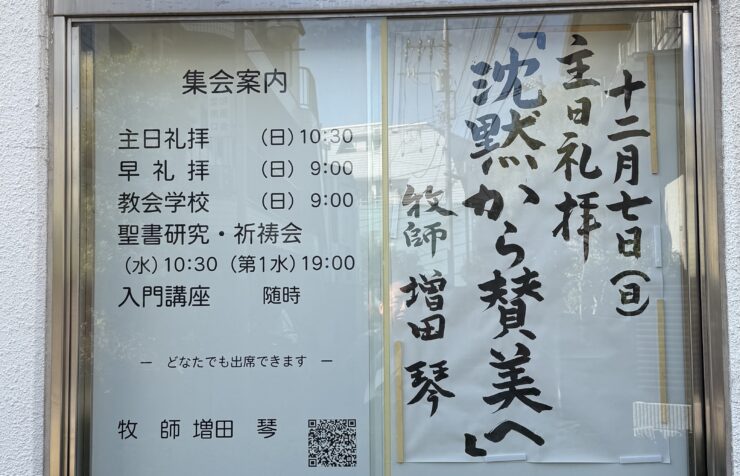 集会案内
主日礼拝 （日）10:30
早礼拝 （日）9:00
教会学校 （日）9:00
聖書研究・祈祷会
（水）10:30（第1水）19:00
入門講座 随時
― どなたでも出席できます ―
牧師 増田 琴
十二月七日（日）
主日礼拝
「沈黙から賛美へ」
牧師 増田 琴